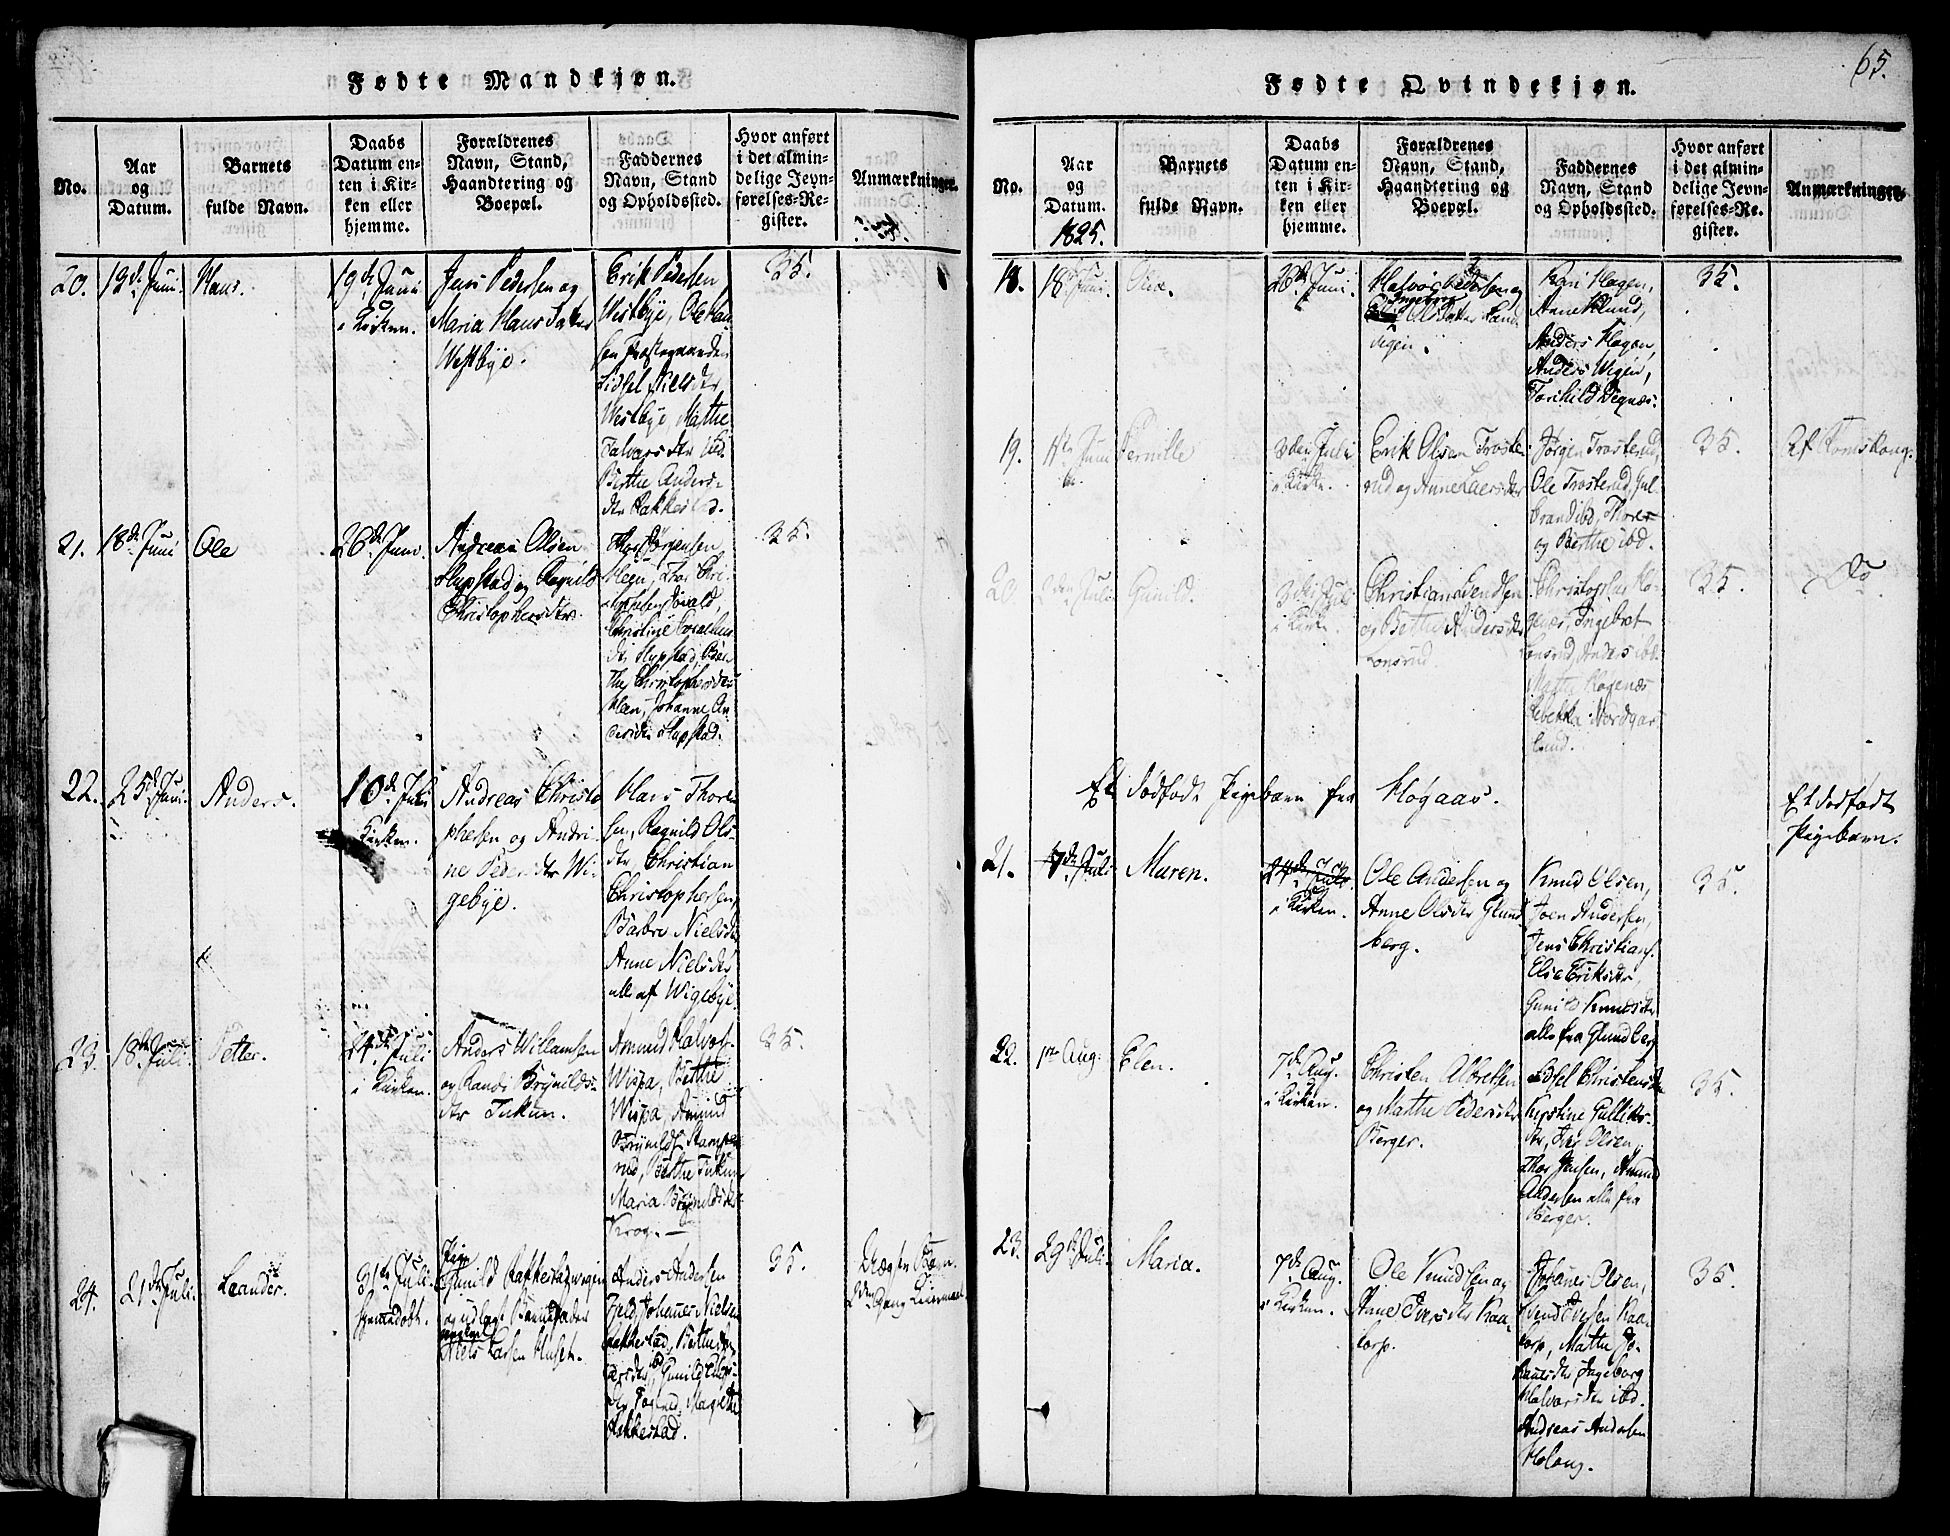 Fødte Mandkjøn.
No.
Aar
og
Datum.
Barnets
fulde Navn.
Daabs
Datum en-
ten i Kir-
ken eller
hjemme.
Forældrenes
Navn, Stand,
Haandtering og
Boepæl.
Faddernes
Navn, Stand
og Opholdssted.
Hvor anført
i det almin-
delige Jevn-
førelses-Re-
gister.
Anmærkninger.
20.
12d. Juni.
Hans.
19d. Juni
i Kirken.
Jens Pedersen og
Maria Hans Datter
Westbye.
Erik Pedersen
Westbye, Ole Han
sen Præstegaarden
Sidsel Nielsdtr
Westbye, Mathe
Halvorsdtr ibd.
Berthe Anders-
dtr Rakkestad.
35.
21.
18d. Juni
Ole
26d. Juni.
Andreas Olsen
Slupstad og Ragnild
Christophersdtr
Thor Jørgensen
Christine
dtr Slupstad,
the Christophersdtr
Johanne An
dersdtr Slupstad.
35.
22.
25d. Juni.
Anders.
10d. Juli
i Kirken.
Andreas Christo
phersen og Andri-
ne Pedersdtr Wi-
gebye.
Hans Thore
sen, Ragnild Ols-
dtr, Christian
Christophersen,
Barbro Nielsdtr
Anne Nielsdtr
alle af Wigebye
23.
18d. Juli.
Petter.
24d. Juli
i Kirken.
Anders Willumsen
og Randi Brynilds-
dtr Tukun.
Amund Halvors
Wispa, Berthe
Wispa, Amund
Brynilds
rud, Berthe Tukun
Maria Brynildsdtr
Krog.
35.
24.
21d. Juli.
Leander.
31te Juli.
hjemmedøbt.
Pige
Gunild Rakkestadvegen
og udlagt Barnefader
Niels Larsen Huset.
Anders Andersen
Johannes Nielsen
Rakkestad, Berthe An
dersdtr, Gunild
Rakkestad.
35.
Uægte Barn.
2den Gang Leiermaal.
65.
Fødte Qvindekjøn.
No.
Aar
og
Datum.
1825.
Barnets
fulde Navn.
Daabs
Datum en-
ten i Kir-
ken eller
hjemme.
Forældrenes
Navn, Stand,
Haandtering og
Boepæl.
Faddernes
Navn, Stand
og Opholdssted.
Hvor anført
i det almin-
delige Jevn-
førelses-Re-
gister.
Anmærkninger.
18.
18d. Juni.
Olea.
26d. Juni.
Halvor Pedersen og
Ingeborg
Kari Hagen,
Anne Klund,
Anders Hagen,
Anders Wigen,
Torchild Degnæs.
35.
19.
Juni
Pernille
3den Juli
i Kirken.
Erik Olsen Troste
rud og Anne Larsdtr
Jørgen Trosterud,
Ole Trosterud, Gul
brand ibd, Thore
og Berthe ibd.
35.
Af Romskoug.
20.
2den Juli
Gunild.
3die Juli
i Kirken.
Christian Svendsen
og Berthe Andersdtr
Lonsrud.
Christopher Ha-
genæs, Ingebret
Lonsrud, Anders ibd.
Mathe Hagenæs
Rebekka Nordgar
lund.
35.
Do.
Et dødfødt Pigebarn fra Høgaas.
Et dødfødt
Pigebarn.
21.
7de Juli
Maren.
24de Juli
i Kirken.
Ole Andersen og
Anne Olsdtr Glund
berg.
Knud Olsen,
Joen Andersen,
Jens Christians.
Else Eriksdtr,
Gunild Knudsdtr
alle fra Glundberg
35.
22.
1ste Aug.
Elen.
7de Aug.
i Kirken.
Christen Albretsen
og Mathe Pedersdtr
Berger.
Sidsel Christensdtr
Kirstine Gulliks-
dtr, Jens Olsen,
Thor Jensen, Amund
Andersen alle fra
Berger.
35.
23.
29d. Juli.
Maria.
7de Aug.
i Kirken.
Ole Knudsen og
Anne Iversdtr Kaa-
torp.
Johannes Olsen,
Svend Iversen Kaa-
torp, Mathe Jo-
hannesdtr, Ingeborg
Halvorsdtr ibd.
Andreas Andersen
Holong.
35.